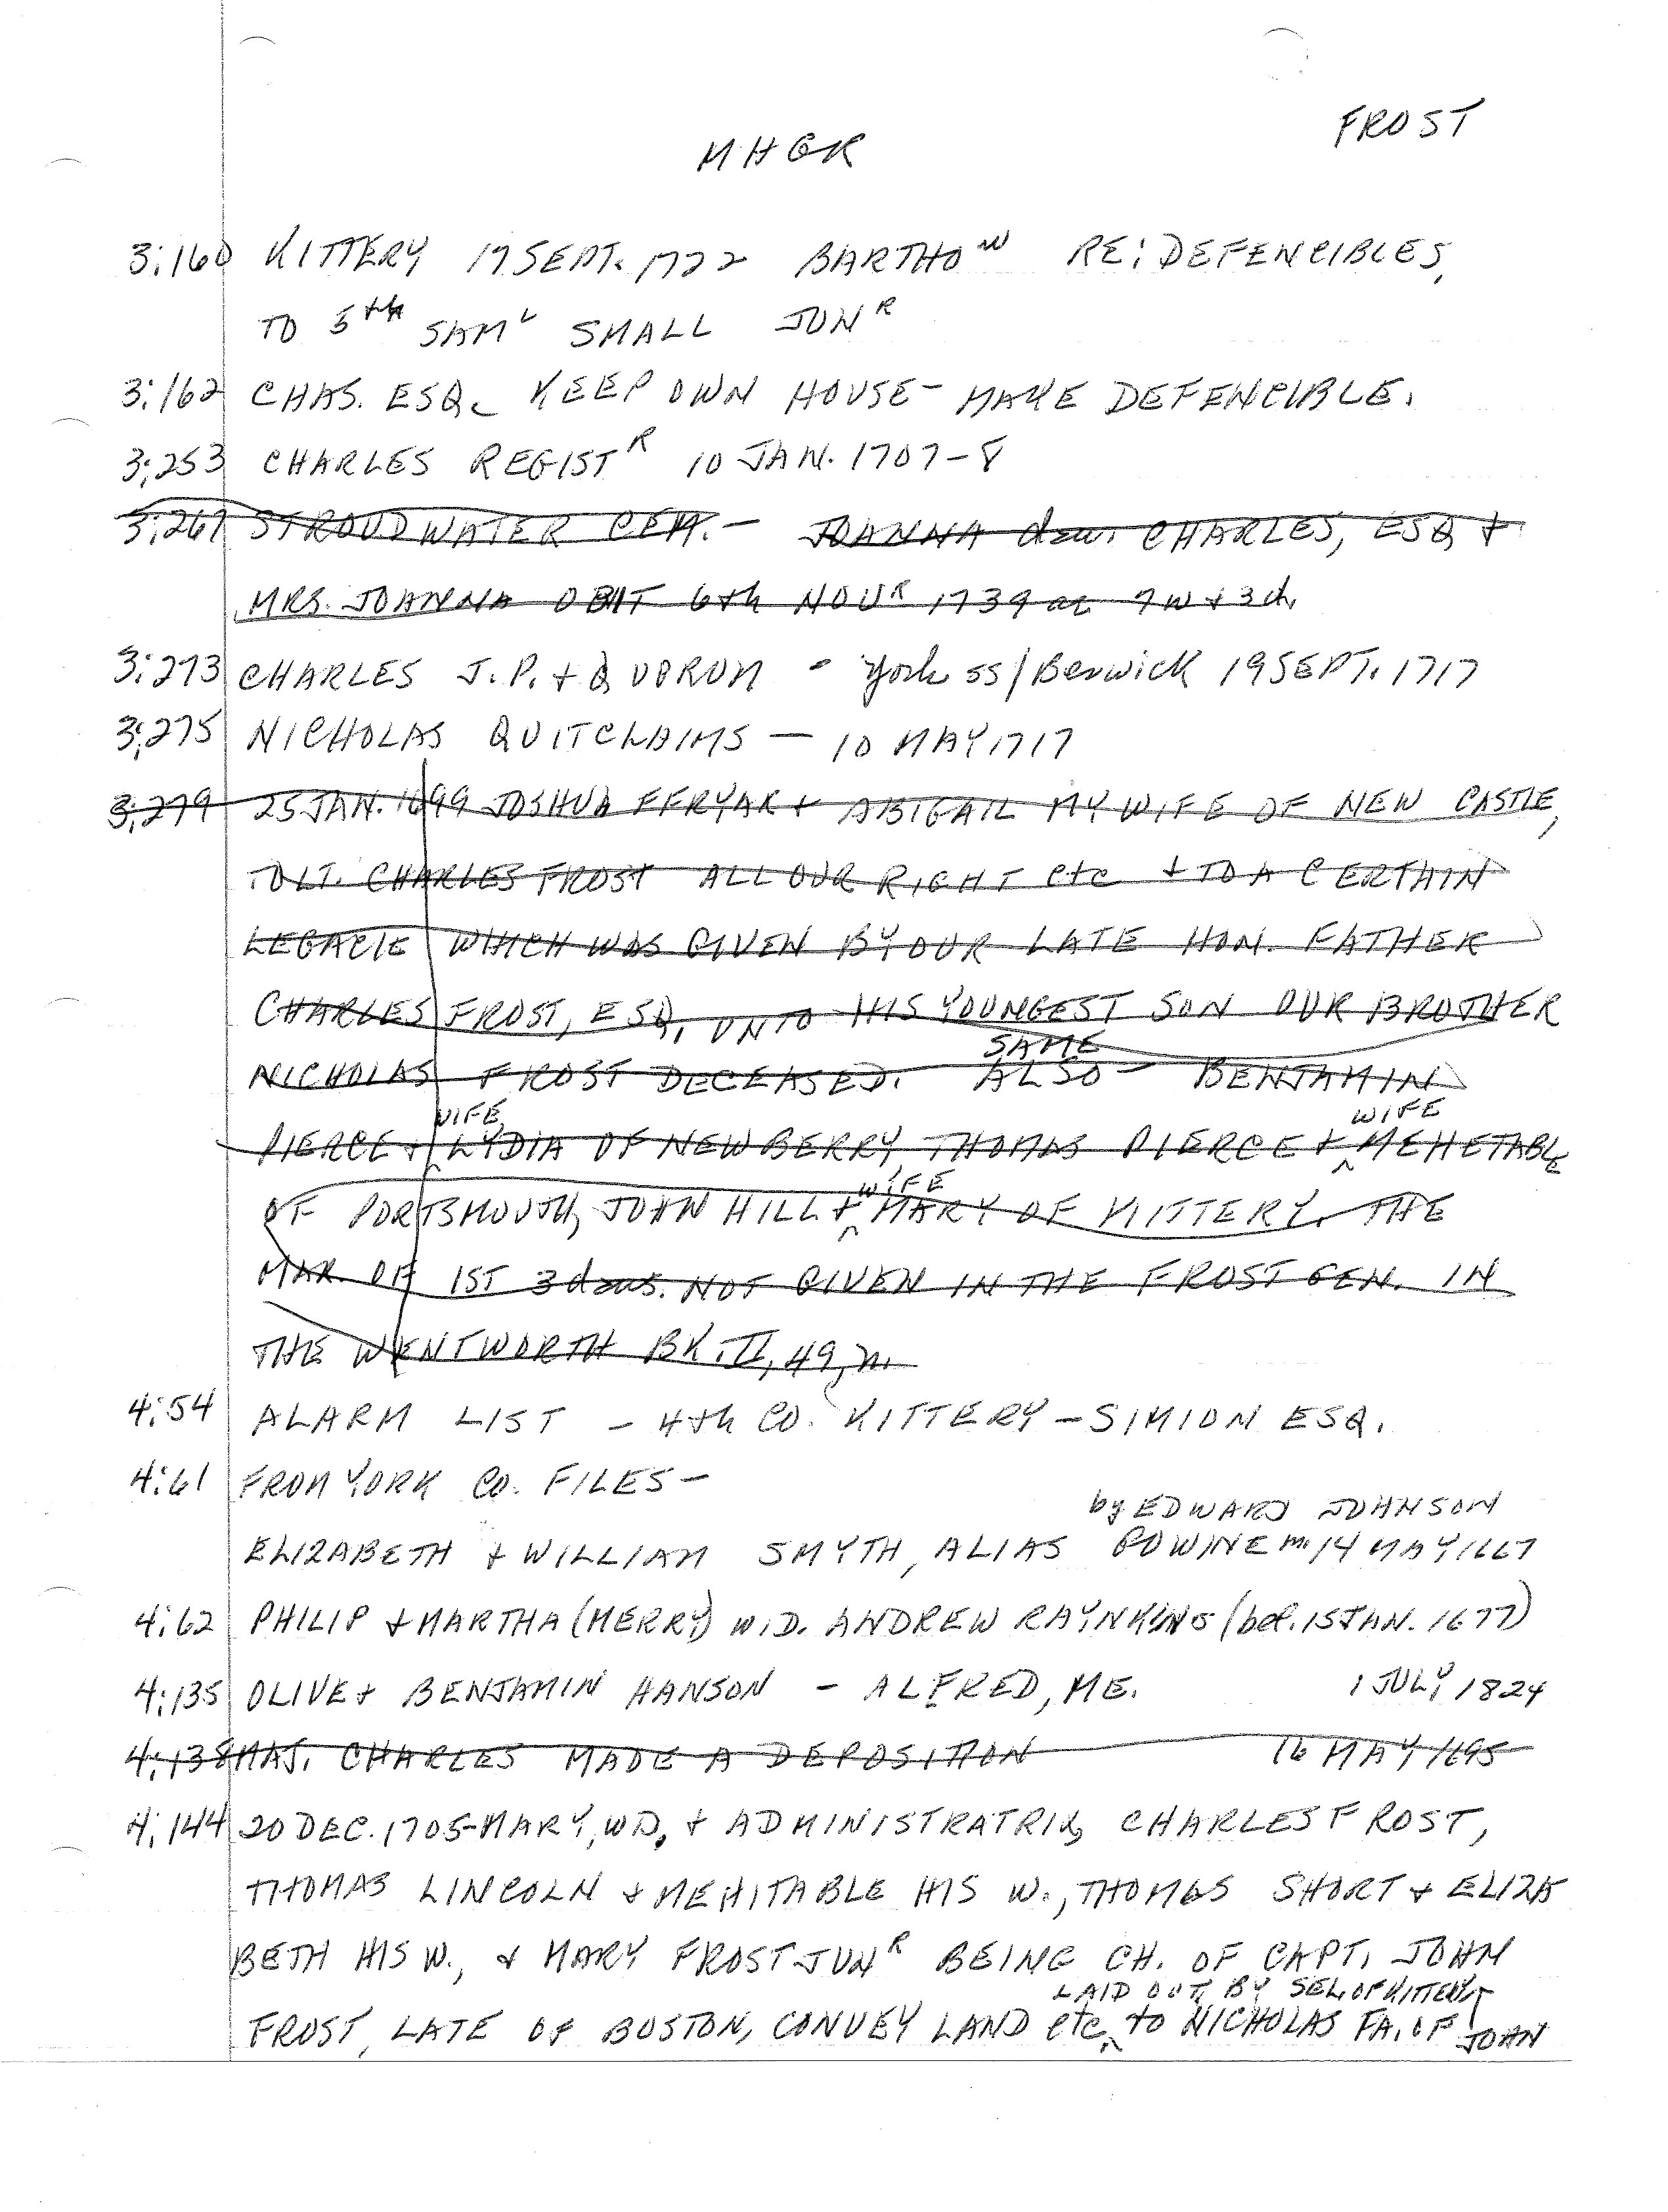 FROST
MHGR
3:160 KITTERY 17 SEPT. 1722 BARTHOW RE: DEFENCIBLES,
TO 5th SAML SMALL JUNR
3:162 CHAS. ESQ. KEEP OWN HOUSE - MAKE DEFENCIBLE.
3:253 CHARLES REGISTR 10 JAN. 1707-8
3:267 STROUDWATER CEM. - JOANNA dau. CHARLES, ESQ +
MRS. JOANNA OBIT 6th NOVR 1739 ae 7w + 3d.
3:273 CHARLES J.P. + QUORUM - York ss/Berwick 19 SEPT. 1717
3:275 NICHOLAS QUITCLAIMS - 10 MAY 1717
3:279 25 JAN. 1699 JOSHUA FFRYAR + ABIGAIL MY WIFE OF NEW CASTLE,
TO LT. CHARLES FROST ALL OUR RIGHT etc + TO A CERTAIN
LEGACIE WHICH WAS GIVEN BY OUR LATE HON. FATHER
CHARLES FROST, ESQ, UNTO HIS YOUNGEST SON OUR BROTHER
NICHOLAS FROST DECEASED. SAME ALSO - BENJAMIN
PIERCE + WIFE LYDIA OF NEWBERRY, THOMAS PIERCE + WIFE MEHETABLE
OF PORTSMOUTH, JOHN HILL + WIFE MARY OF KITTERY. THE
MAR. OF 1ST 3 daus. NOT GIVEN IN THE FROST GEN. IN
THE WENTWORTH BK. II, 49, n.
4:54 ALARM LIST - 4th CO. KITTERY - SIMION ESQ.
4:61 FROM YORK CO. FILES -
by EDWARD JOHNSON
ELIZABETH + WILLIAM SMYTH, ALIAS GOWINE m. 14 MAY 1667
4:62 PHILIP + MARTHA (MERRY) WID. ANDREW RAYNKING (bef. 15 JAN. 1677)
4:135 OLIVE + BENJAMIN HANSON - ALFRED, ME. 1 JULY 1824
4:138 MAJ. CHARLES MADE A DEPOSITION 16 MAY 1695
4:144 20 DEC. 1705-MARY, WD, + ADMINISTRATRIX, CHARLES FROST,
THOMAS LINCOLN + MEHITABLE HIS W., THOMAS SHORT + ELIZA
BETH HIS W., + MARY FROST JUNR BEING CH. OF CAPT. JOHN
LAID OUT BY SEL. OF KITTERY
FROST, LATE OF BOSTON, CONVEY LAND etc, to NICHOLAS FA. OF JOHN